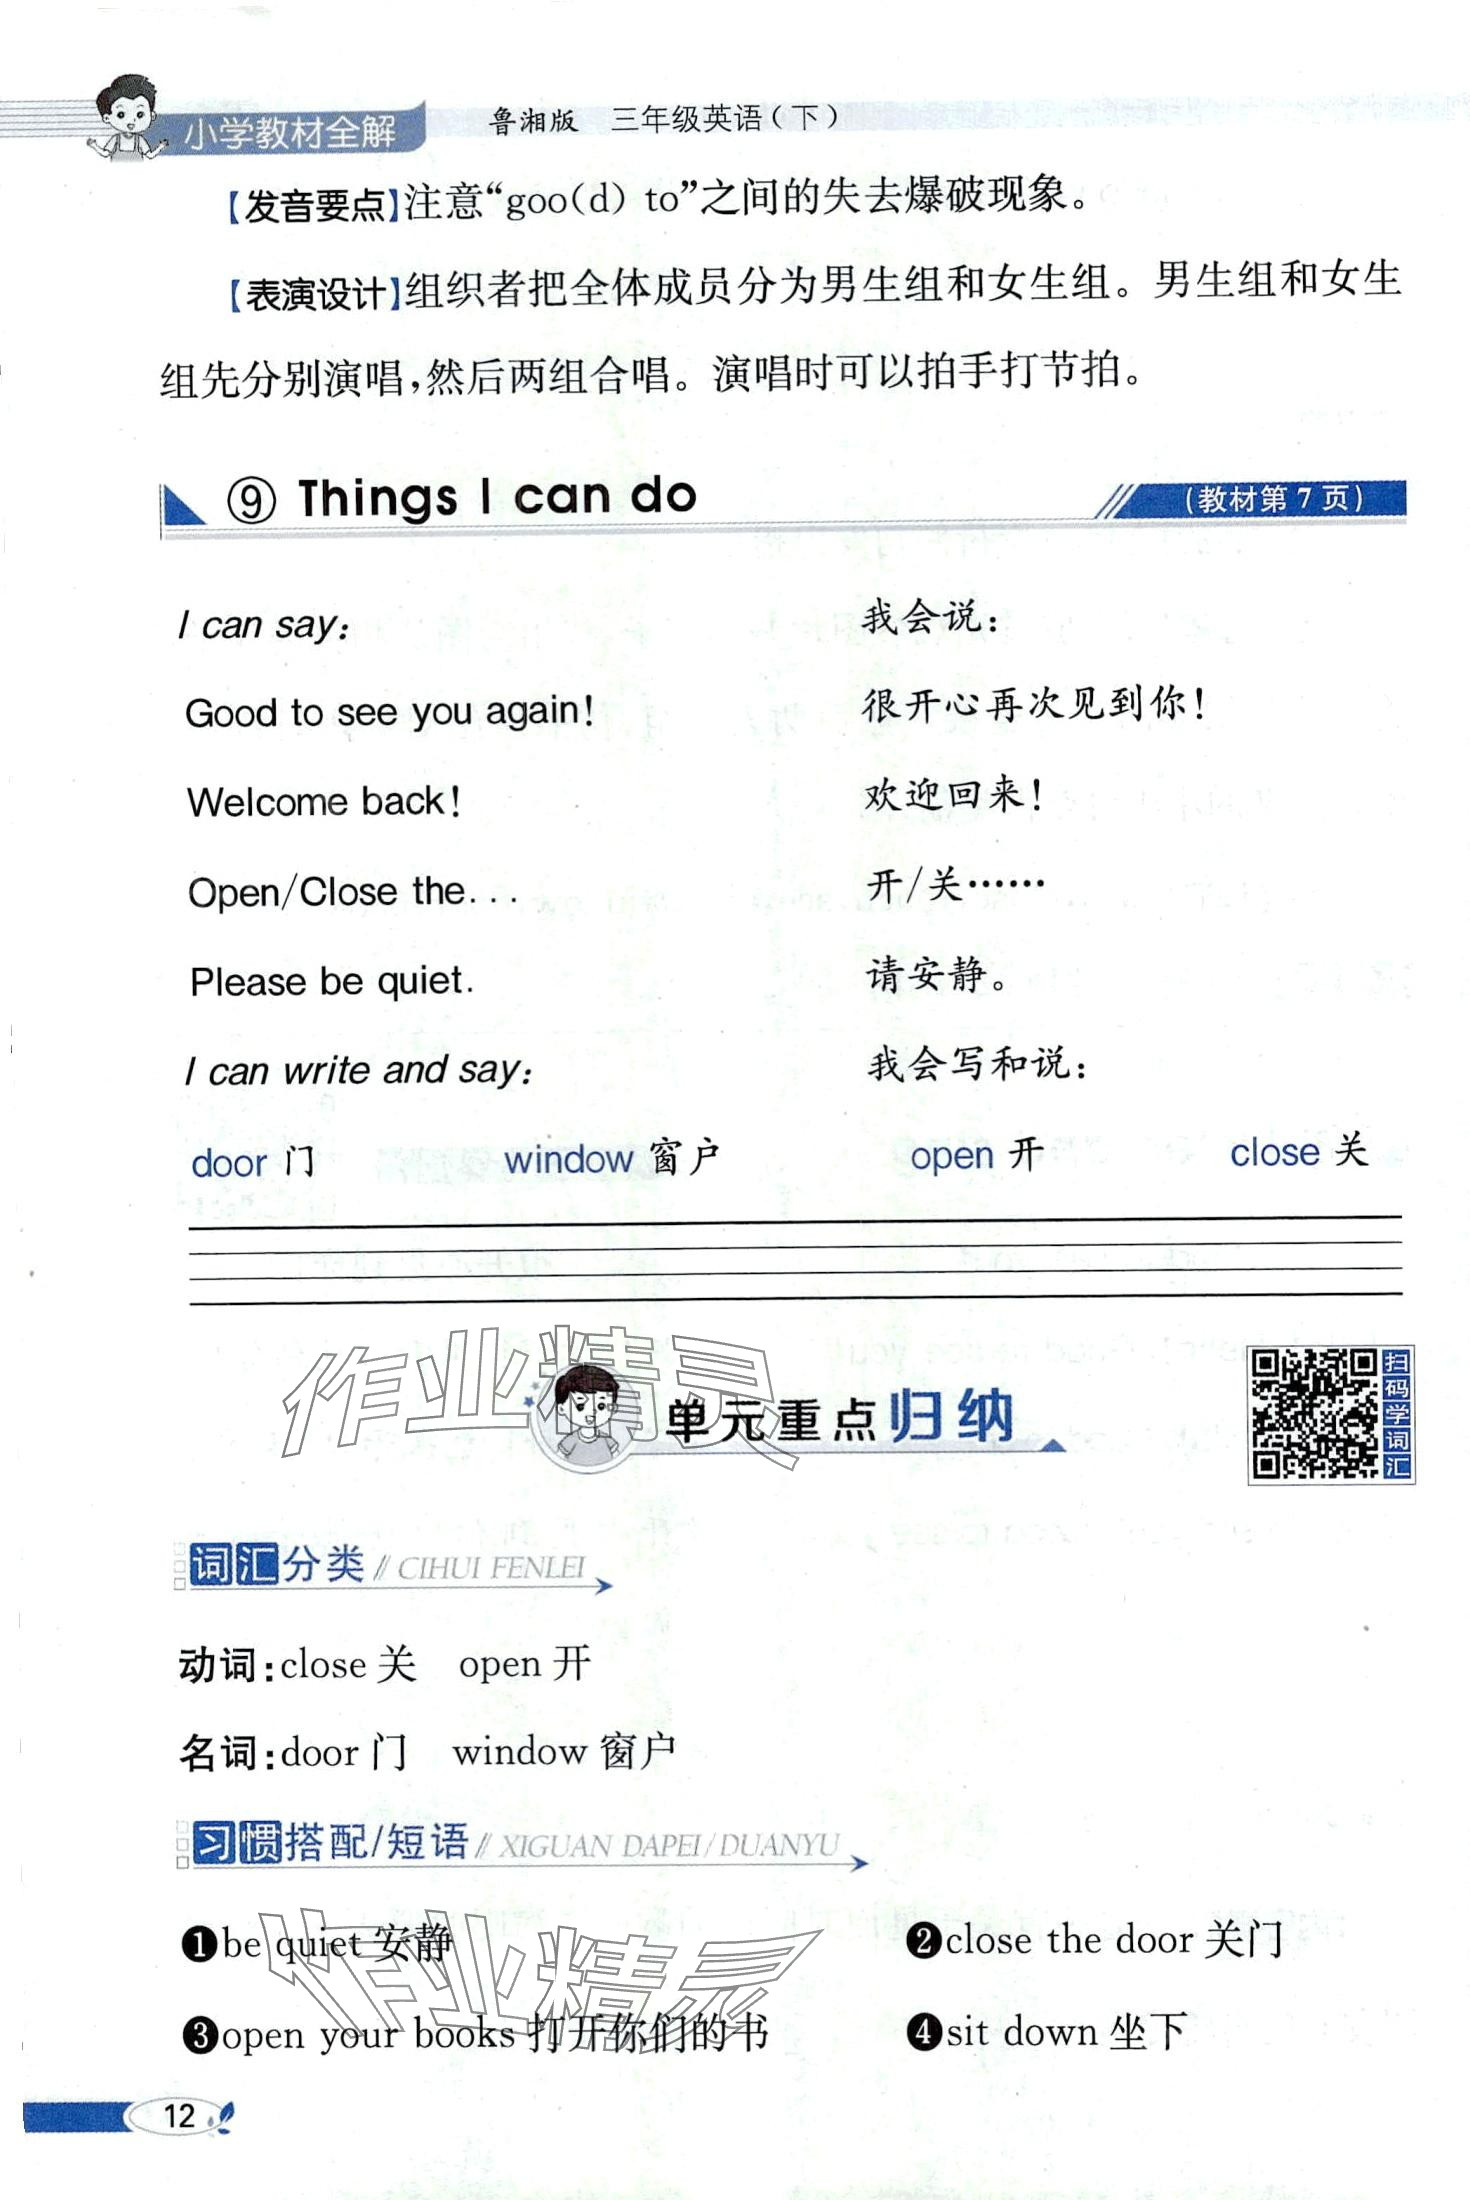 小学教材全解 鲁湘版 三年级英语(下)
【发音要点】注意“goo(d) to”之间的失去爆破现象。
【表演设计】组织者把全体成员分为男生组和女生组。男生组和女生
组先分别演唱,然后两组合唱。演唱时可以拍手打节拍。
⑨ Things I can do (教材第7页)
I can say: 我会说:
Good to see you again! 很开心再次见到你!
Welcome back! 欢迎回来!
Open/Close the... 开/关……
Please be quiet. 请安静。
I can write and say: 我会写和说:
door 门 window 窗户 open 开 close 关
作业精灵
单元重点归纳
扫码学词汇
词汇分类 // CIHUI FENLEI
动词:close 关 open 开
名词:door 门 window 窗户
习惯搭配/短语 // XIGUAN DAPEI/DUANYU
❶be quiet 安静 ❷close the door 关门
作业精灵
❸open your books 打开你们的书 ❹sit down 坐下
12